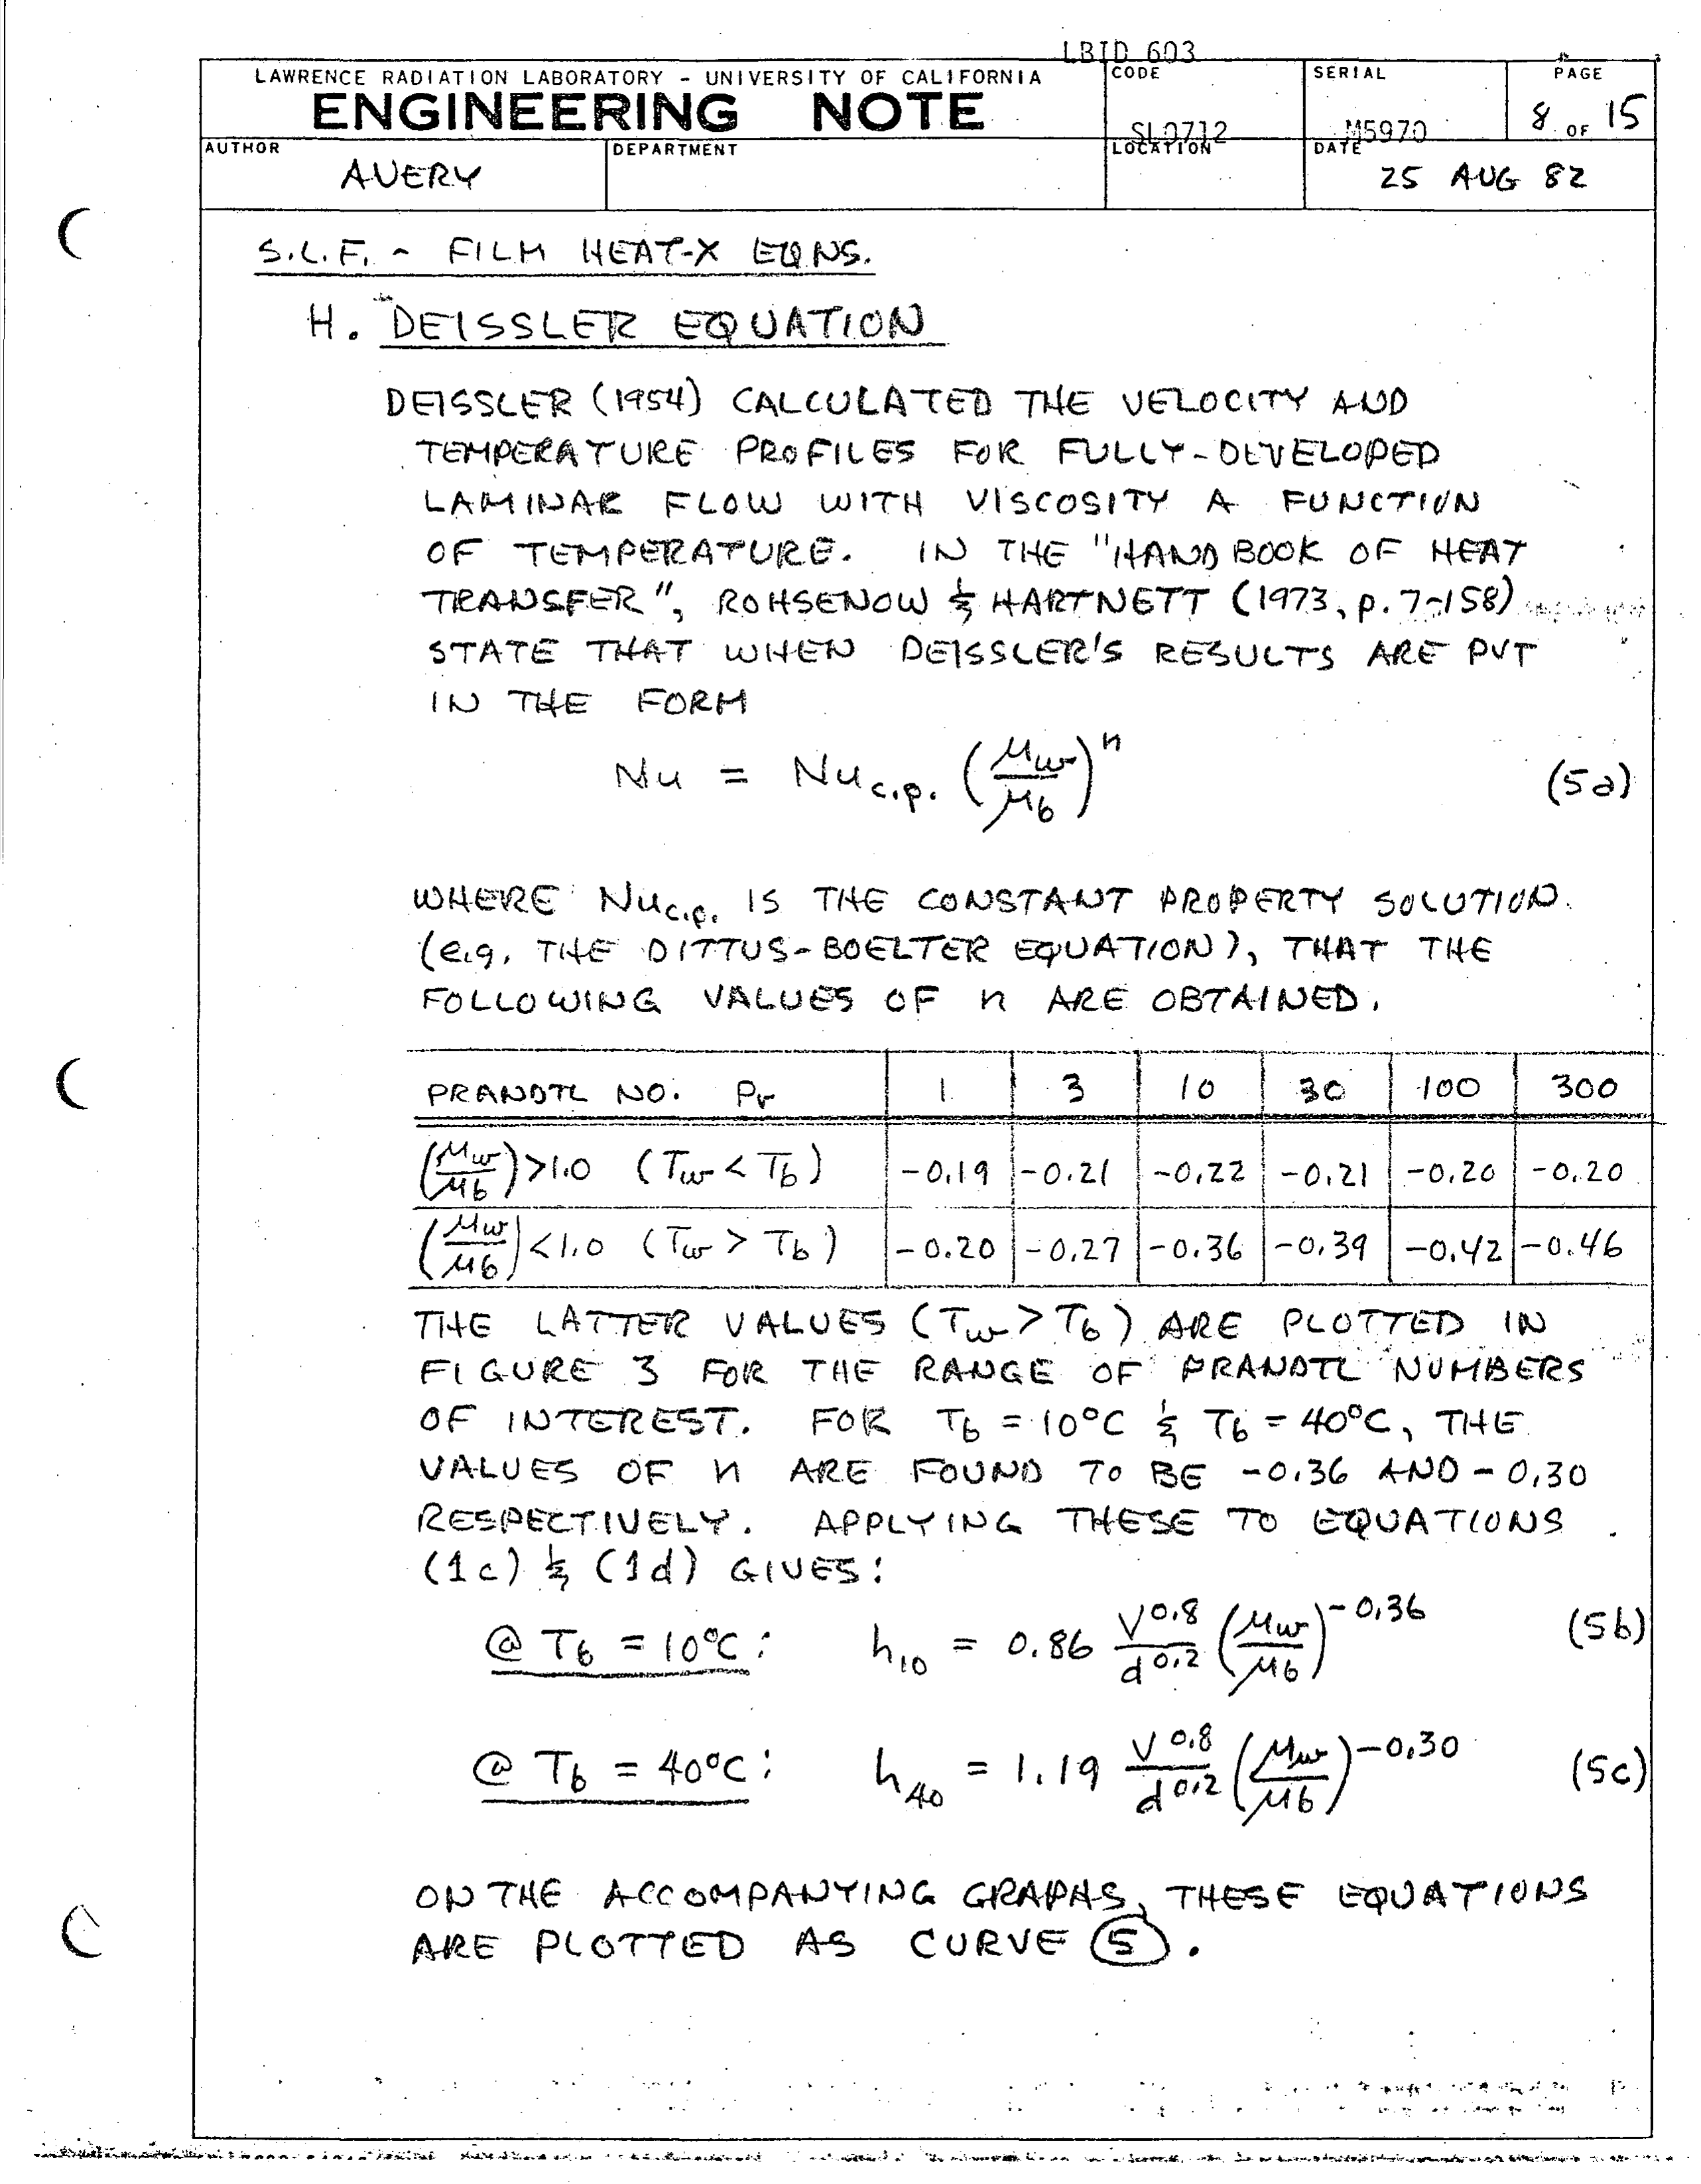 LBID 603
LAWRENCE RADIATION LABORATORY - UNIVERSITY OF CALIFORNIA
ENGINEERING NOTE
CODE
SL0712
SERIAL
M5970
PAGE
8 OF 15
AUTHOR
AVERY
DEPARTMENT
LOCATION
DATE
25 AUG 82
S.L.F. - FILM HEAT-X EQNS.
H. DEISSLER EQUATION
DEISSLER (1954) CALCULATED THE VELOCITY AND
TEMPERATURE PROFILES FOR FULLY-DEVELOPED
LAMINAR FLOW WITH VISCOSITY A FUNCTION
OF TEMPERATURE. IN THE "HANDBOOK OF HEAT
TRANSFER", ROHSENOW & HARTNETT (1973, p. 7-158)
STATE THAT WHEN DEISSLER'S RESULTS ARE PUT
IN THE FORM
Nu = Nu c.p. (μw/μb)^n (5a)
WHERE Nu c.p. IS THE CONSTANT PROPERTY SOLUTION
(e.g. THE DITTUS-BOELTER EQUATION), THAT THE
FOLLOWING VALUES OF n ARE OBTAINED.
PRANDTL NO. Pr 1 3 10 30 100 300
(μw/μb) >1.0 (Tw < Tb) -0.19 -0.21 -0.22 -0.21 -0.20 -0.20
(μw/μb) <1.0 (Tw > Tb) -0.20 -0.27 -0.36 -0.39 -0.42 -0.46
THE LATTER VALUES (Tw > Tb) ARE PLOTTED IN
FIGURE 3 FOR THE RANGE OF PRANDTL NUMBERS
OF INTEREST. FOR Tb = 10°C & Tb = 40°C, THE
VALUES OF n ARE FOUND TO BE -0.36 AND -0.30
RESPECTIVELY. APPLYING THESE TO EQUATIONS
(1c) & (1d) GIVES:
@ Tb = 10°C: h10 = 0.86 V^0.8/d^0.2 (μw/μb)^-0.36 (5b)
@ Tb = 40°C: h40 = 1.19 V^0.8/d^0.2 (μw/μb)^-0.30 (5c)
ON THE ACCOMPANYING GRAPHS, THESE EQUATIONS
ARE PLOTTED AS CURVE (5).